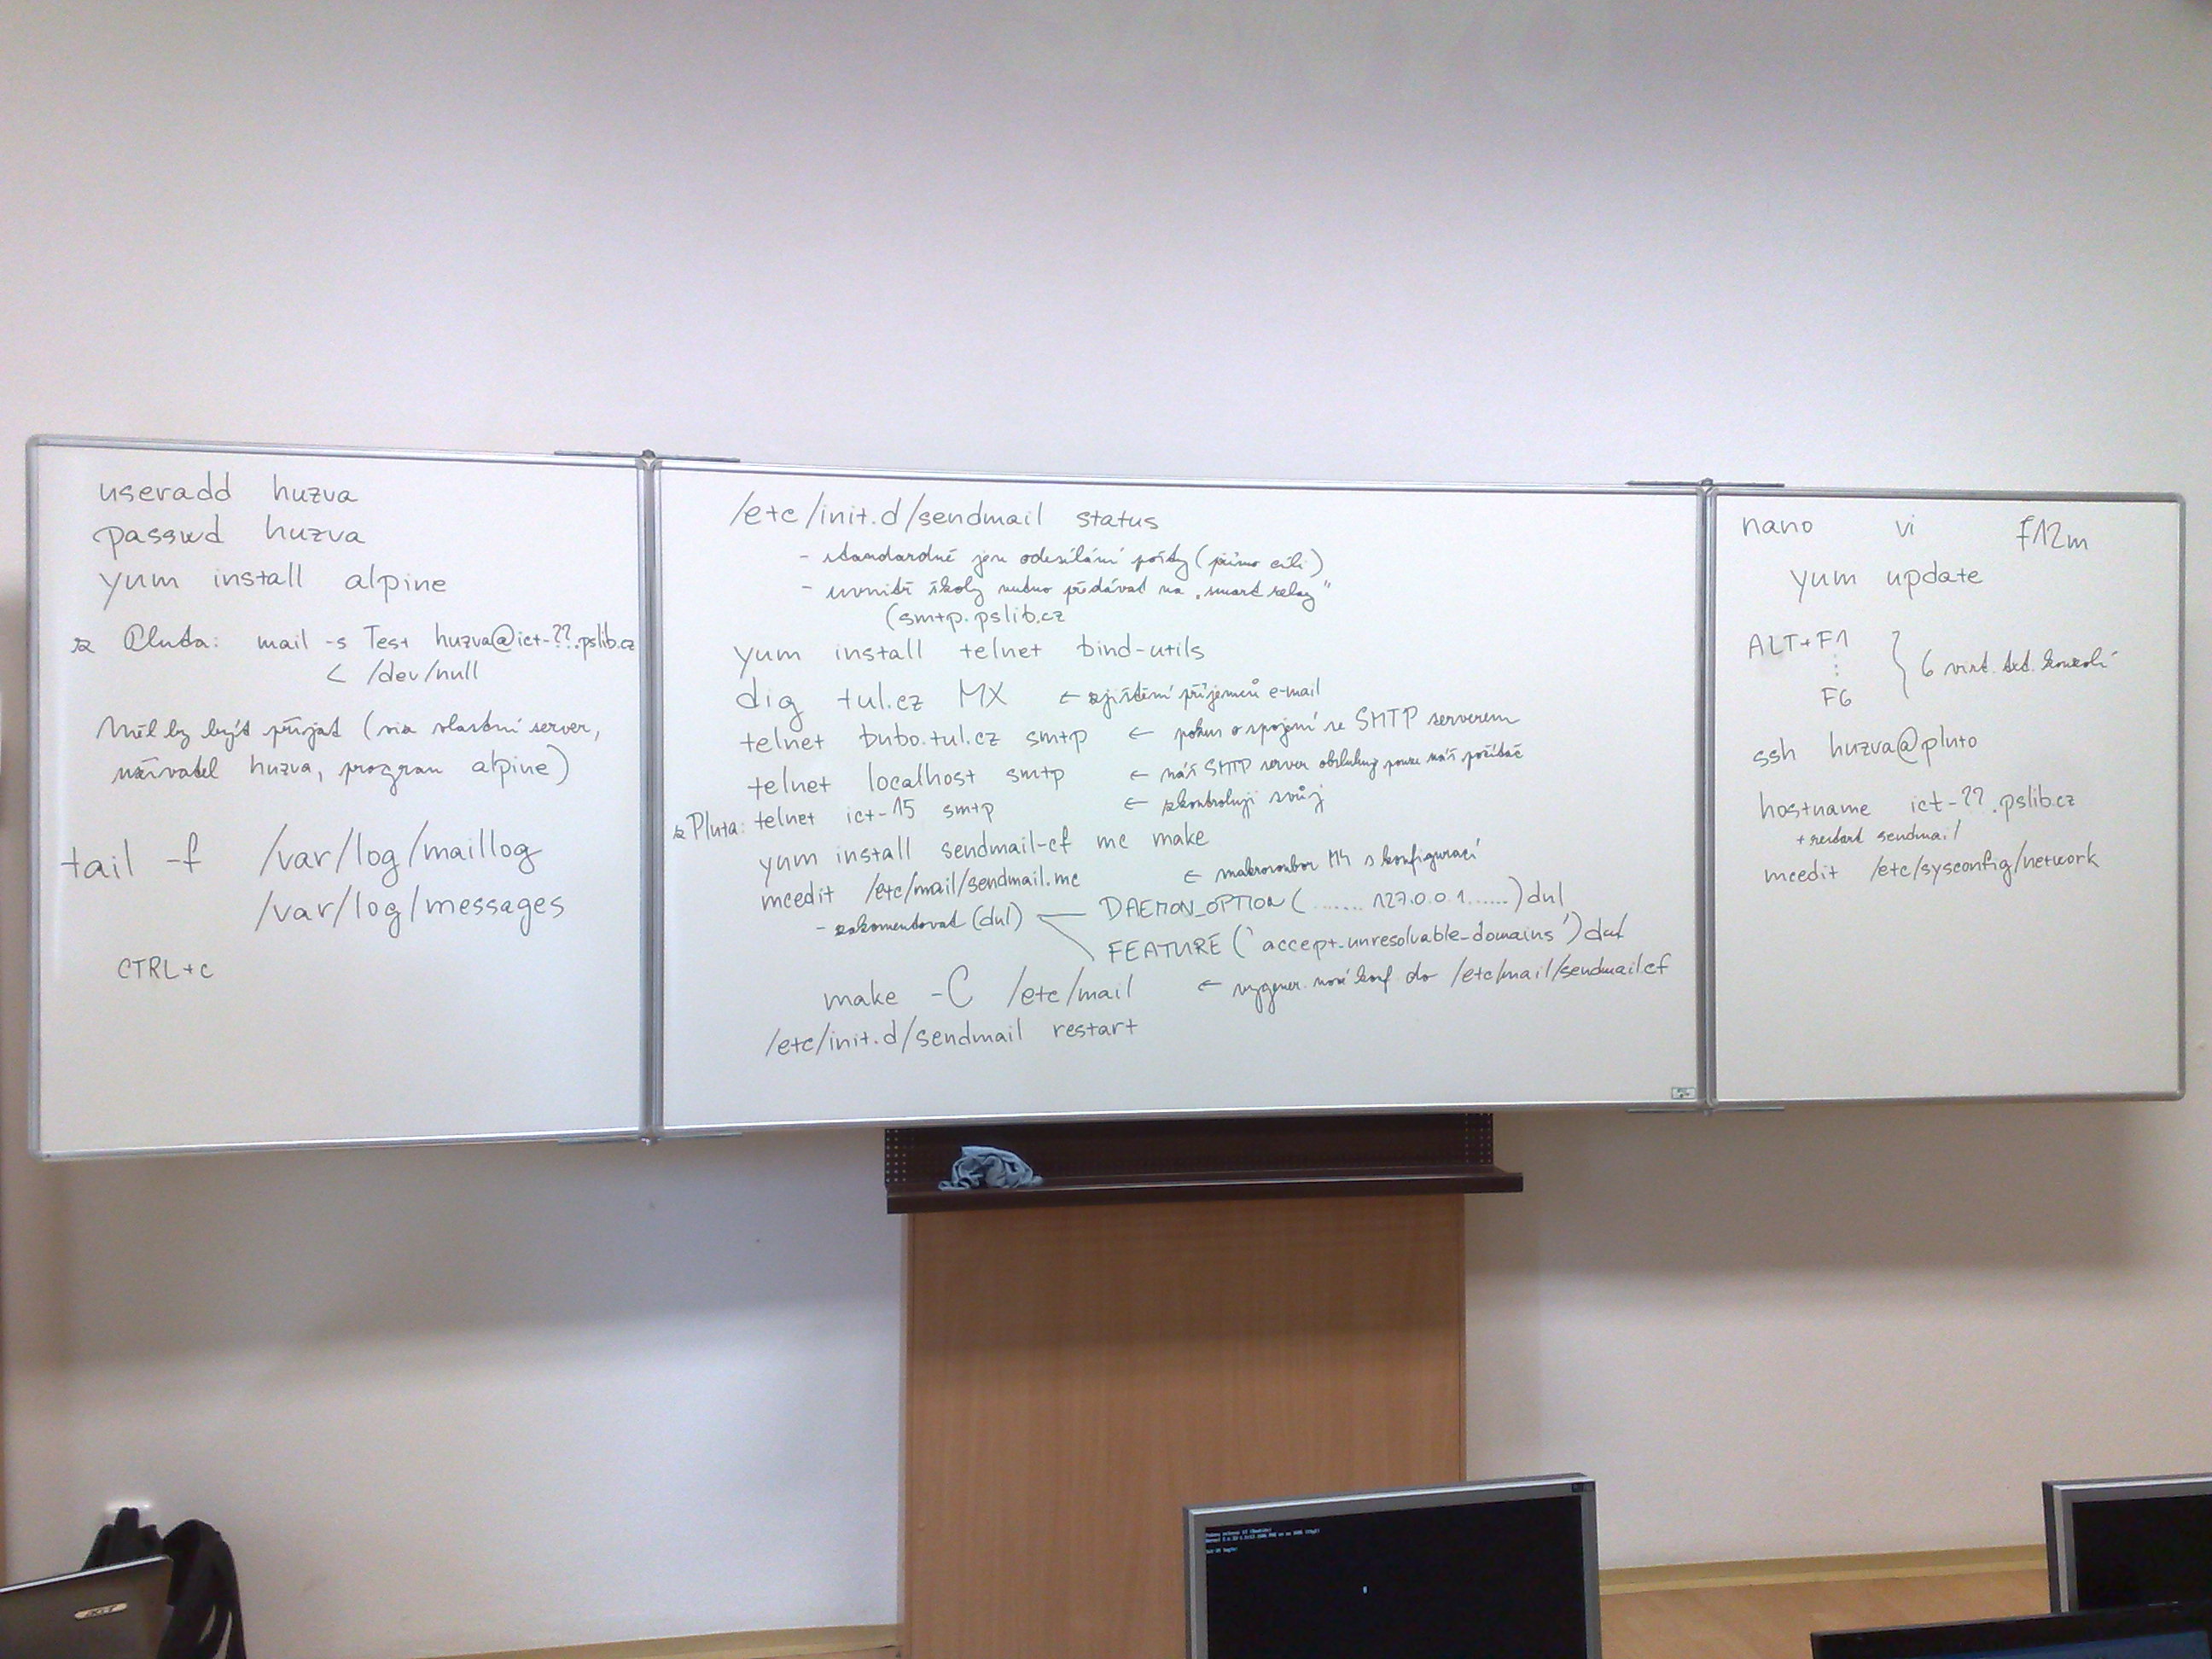 useradd huzva
passwd huzva
yum install alpine
z Pluta: mail -s Test huzva@ict-??.pslib.cz
< /dev/null
Měl by být přijat (via vlastní server,
uživatel huzva, program alpine)
tail -f /var/log/maillog
/var/log/messages
CTRL+c
/etc/init.d/sendmail status
- standardně jen odesílání pošty (přímo cíli)
- uvnitř školy nutno předávat na „smart relay"
(smtp.pslib.cz
yum install telnet bind-utils
dig tul.cz MX ← zjištění příjemců e-mail
telnet bubo.tul.cz smtp ← pokus o spojení se SMTP serverem
telnet localhost smtp ← náš SMTP server obsluhuje pouze náš počítač
z Pluta: telnet ict-15 smtp ← zkontroluji svůj
yum install sendmail-cf mc make
mcedit /etc/mail/sendmail.mc ← makrosoubor M4 s konfigurací
- zakomentovat (dnl) DAEMON_OPTION( ....... 127.0.0.1 ......) dnl
FEATURE (`accept_unresolvable_domains') dnl
make -C /etc/mail ← vygener. nové konf do /etc/mail/sendmail.cf
/etc/init.d/sendmail restart
nano vi f12m
yum update
ALT+F1
⋮ } 6 virt. txt. konzolí
F6
ssh huzva@pluto
hostname ict-??.pslib.cz
+ restart sendmail
mcedit /etc/sysconfig/network
acer